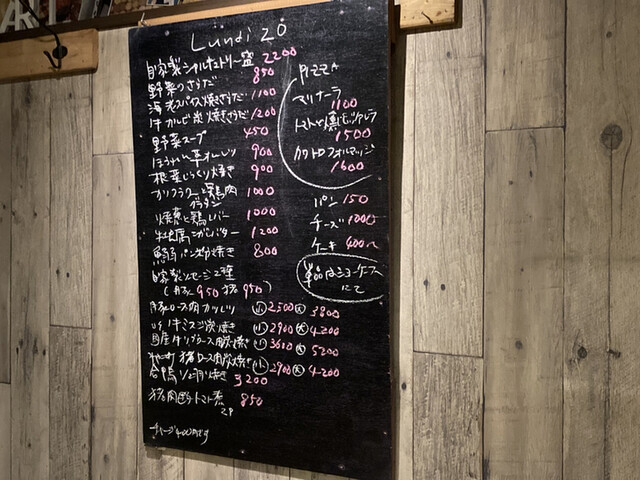 ART
Lundi 20
自家製シャルキュトリー盛 2200
野菜のさらだ 850
海老スパイス焼きさらだ 1100
牛カルビ炭焼きさらだ 1200
野菜スープ 450
ほうれん草オムレツ 900
根菜じっくり焼き 900
カリフラワーと鶏肉グラタン 1000
燻鶏レバー 1000
牡蠣 バター 1200
パン粉焼き 800
自家製ソーセージ2種
950 猪 950)
豚ロース肉カツレツ (小)2500 (大)3800
牛ミスジ炭焼き (小)2900 (大)4200
国産牛ランプロース肉炭焼き (小)3600 (大)5200
猪ロース肉炭焼き (小)2900 (大)4200
合鴨1/2羽焼き 3200
猪肉団子トマト煮 2P 850
チャージ400円です
PIZZA
マリナーラ 1100
トマトと燻モッツァレラ 1500
クワトロフォルマッジ 1600
パン 150
チーズ 1000
ケーキ 400
単品はショーケースにて